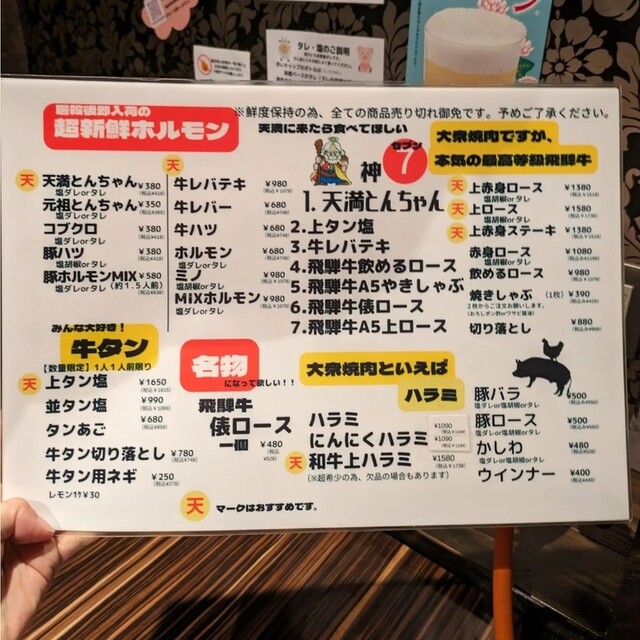 タレ・塩のご説明
屠殺後即入荷の
超新鮮ホルモン
※鮮度保持の為、全ての商品売り切れ御免です。予めご了承ください。
天 天満とんちゃん ¥380
塩ダレorタレ (税込¥418)
元祖とんちゃん ¥350
塩ダレorタレ (税込¥385)
コブクロ ¥380
塩ダレorタレ (税込¥418)
豚ハツ ¥380
塩ダレorタレ (税込¥418)
豚ホルモンMIX ¥580
塩ダレorタレ (約1.5人前)
天
牛レバテキ ¥980
(税込¥1078)
牛レバー ¥680
(税込¥748)
牛ハツ ¥680
(税込¥748)
ホルモン ¥680
塩ダレorタレ (税込¥748)
ミノ ¥980
塩ダレorタレ (税込¥1078)
MIXホルモン ¥980
塩ダレorタレ
天満に来たら食べてほしい
神
セブン
7
1.天満とんちゃん
2.上タン塩
3.牛レバテキ
4.飛騨牛飲めるロース
5.飛騨牛A5やきしゃぶ
6.飛騨牛俵ロース
7.飛騨牛A5上ロース
大衆焼肉ですが、
本気の最高等級飛騨牛
天 上赤身ロース ¥1380
塩胡椒orタレ (税込¥1518)
天 上ロース ¥1580
塩胡椒orタレ (税込¥1738)
天 上赤身ステーキ ¥1380
(税込¥1518)
赤身ロース ¥1080
塩胡椒orタレ
飲めるロース ¥980
(税込¥1078)
焼きしゃぶ (1枚) ¥390
2枚からご注文お願いします。 (税込¥429)
(おろしポン酢orワサビ醤油)
切り落とし ¥880
(税込¥968)
みんな大好き!
牛タン
【数量限定】1人1人前限り
天 上タン塩 ¥1650
(税込¥1815)
並タン塩 ¥990
(税込¥1089)
タンあご ¥680
(税込¥748)
牛タン切り落とし ¥780
牛タン用ネギ ¥250
(税込¥275)
レモン1ケ¥30
名物
になって欲しい!!
飛騨牛
俵ロース
一個 ¥480
(税込¥528)
大衆焼肉といえば
ハラミ
ハラミ ¥1090
にんにくハラミ ¥1090
天 和牛上ハラミ ¥1580
(税込¥1738)
(※超希少の為、欠品の場合もあります)
豚バラ ¥500
塩ダレor塩胡椒orタレ (税込¥550)
豚ロース ¥500
塩ダレor塩胡椒orタレ (税込¥550)
かしわ ¥480
塩ダレor塩胡椒orタレ (税込¥528)
ウインナー ¥400
(税込¥440)
天 マークはおすすめです。